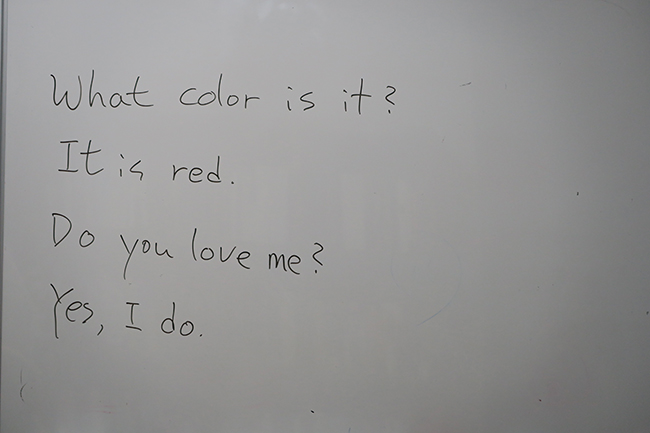 What color is it?
It is red.
Do you love me?
Yes, I do.